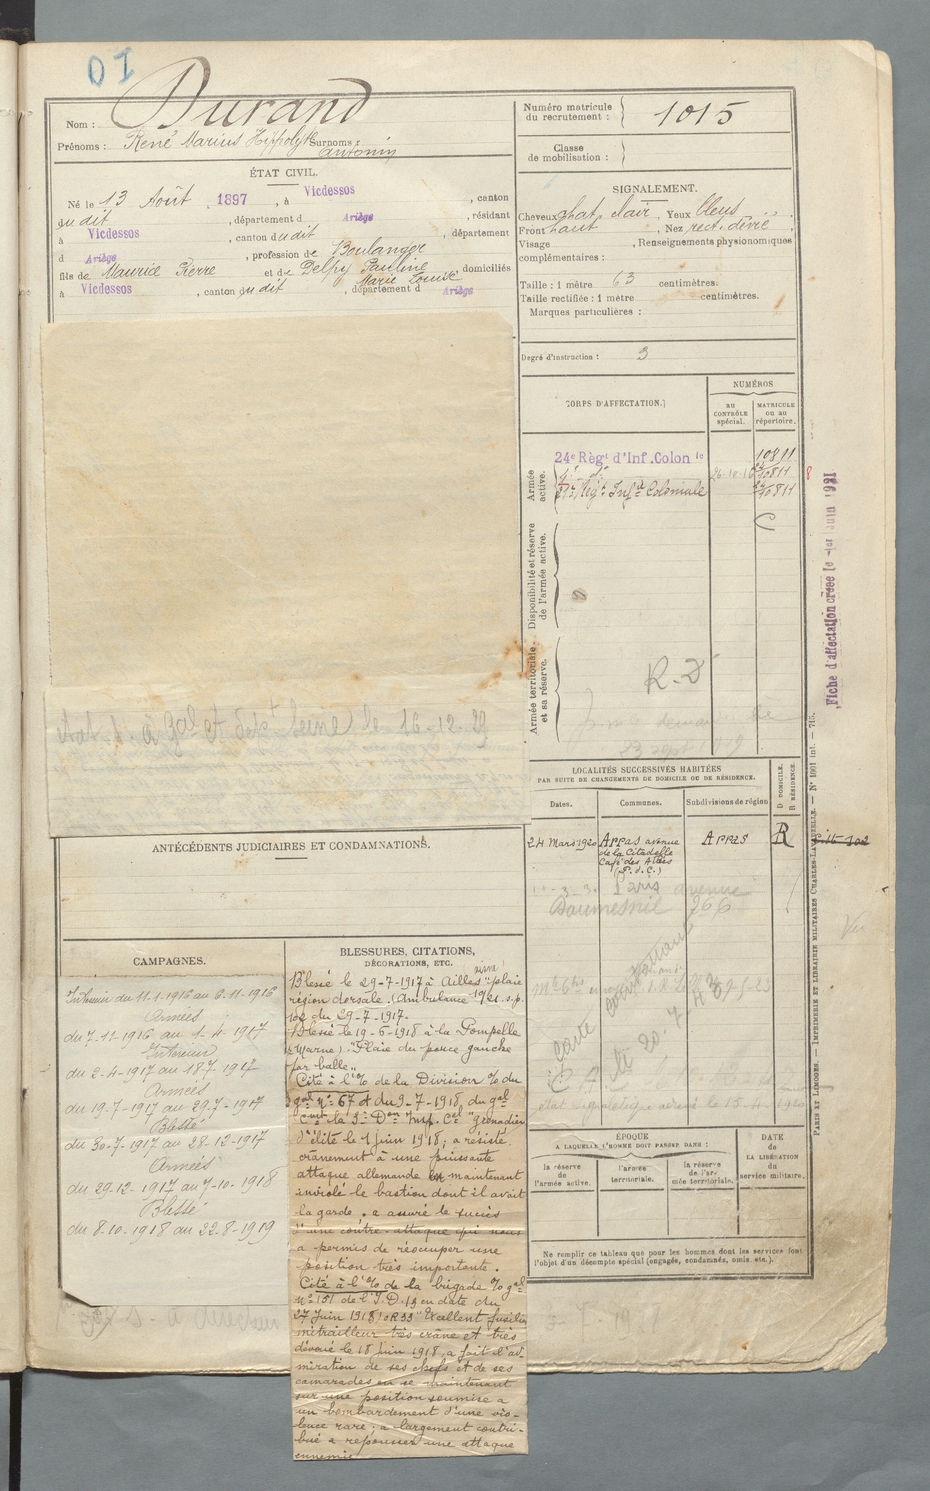 01
Nom : Durand
Prénoms : René Marius Hippolyte Surnoms :
Antonin
ÉTAT CIVIL.
Né le 13 Août , 1897 , à Vicdessos , canton
dudit , département d Ariège , résidant
à Vicdessos , canton dudit , département
d Ariège , profession de Boulanger
fils de Maurice Pierre et de Delpy Pauline , domiciliés
Marie Louise
à Vicdessos , canton dudit , département d Ariège
Numéro matricule
du recrutement : 1015
Classe
de mobilisation :
SIGNALEMENT.
Cheveux chat. clair , Yeux bleus ,
Front haut , Nez rect. dévié ,
Visage , Renseignements physionomiques
complémentaires :
Taille : 1 mètre 63 centimètres.
Taille rectifiée : 1 mètre centimètres.
Marques particulières :
Degré d'instruction : 3
CORPS D'AFFECTATION.
NUMÉROS
AU
CONTRÔLE
spécial.
MATRICULE
ou au
répertoire.
Armée
active.
24e Régt d'Inf. Colon le 10811
26-10-16 10811
Régt Infie Coloniale 10811
Disponibilité et réserve
de l'armée active.
Armée territoriale
et sa réserve.
R. D
Fiche d'affectation créée le 1er Juin 1921
à Gal et dépt Seine le 16-12-29
LOCALITÉS SUCCESSIVES HABITÉES
PAR SUITE DE CHANGEMENTS DE DOMICILE OU DE RÉSIDENCE.
Dates.
Communes.
Subdivisions de région
D DOMICILE.
R RÉSIDENCE.
24 Mars 1920 Arras avenue Arras R
de la Citadelle
Café des Alliés
(P. d. C.)
Paris avenue
Daumesnil 266
ANTÉCÉDENTS JUDICIAIRES ET CONDAMNATIONS.
CAMPAGNES.
Intérieur du 11.1.1916 au 6.11.1916
Armées
du 7-11-1916 au 1-4-1917
Intérieur
du 2-4-1917 au 18-7-1917
Armées
du 19-7-1917 au 29-7-1917
Blessé
du 30-7-1917 au 28-12-1917
Armées
du 29-12-1917 au 7-10-1918
Blessé
du 8-10-1918 au 22-8-1919
BLESSURES, CITATIONS,
DÉCORATIONS, ETC.
Blessé le 29-7-1917 à Ailles (Aisne) "plaie
région dorsale. (Ambulance 1921. s.p.
102 du 29-7-1917.
Blessé le 19-6-1918 à la Pompelle
(Marne) "Plaie du pouce gauche
par balle"
Cité à l'% de la Division % du
gal n° 67 d du 9-7-1918, du gal
Cmt la 3e Don Insp. Cal "grenadier
d'élite le 1 juin 1918; a résisté
crânement à une puissante
attaque allemande en maintenant
inviolé le bastion dont il avait
la garde. a assuré le succès
d'une contre-attaque qui nous
a permis de réoccuper une
position très importante.
Cité à l'% de la brigade % gal
n° 151 de l'I.D. 19 en date du
27 Juin 1918 "Excellent fusilier
mitrailleur très crâne et très
dévoué le 18 Juin 1918, a fait l'ad-
miration de ses chefs et de ses
camarades en se maintenant
sur une position soumise à
un bombardement d'une vio-
lence rare; a largement contri-
bué à repousser une attaque
ennemie
ÉPOQUE
A LAQUELLE L'HOMME DOIT PASSER DANS :
la réserve
de l'armée active.
l'armée
territoriale.
la réserve
de l'ar-
mée territoriale.
DATE
de
LA LIBÉRATION
du
service militaire.
Ne remplir ce tableau que pour les hommes dont les services font
l'objet d'un décompte spécial (engagés, condamnés, omis, etc.).
PARIS ET LIMOGES. — IMPRIMERIE ET LIBRAIRIE MILITAIRES CHARLES-LAVAUZELLE. — N° 1001 int. — 715.